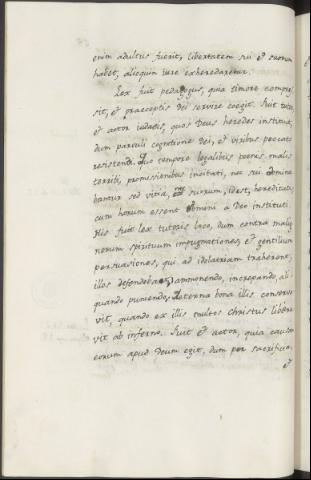 enim adultus fuerit, libertatem sui et suorum
habet, alioquin iure exhedaretur.
Lex fuit pedagogus, quia timore compre
sit, et praeceptis Dei servire coegit. Fuit tutor
et actor iudaeis, quos Deus heredes instituit,
dum parvuli cognitione Dei, et viribus peccato
resistendi. Quo tempore legalibus poenis, malis
territi, promissionibus incitati, non sui
bantur sed vitia, suorum, idest, hereditatis
cum horum essent a Deo instituti.
His fuit lex tutoris loco, dum contra malig
norum spirituum impugnationes, et gentilium
persuasiones, qui ad idolatriam traherent,
illos defendebat, ammonendo, increpando, ali
quando puniendo. Aeterna bona illis conser
vit, quando ex illis multos Christus libera
vit ab inferno. Fuit et actor, quia causam
eorum apud Deum egit, dum per sacrificia,
et